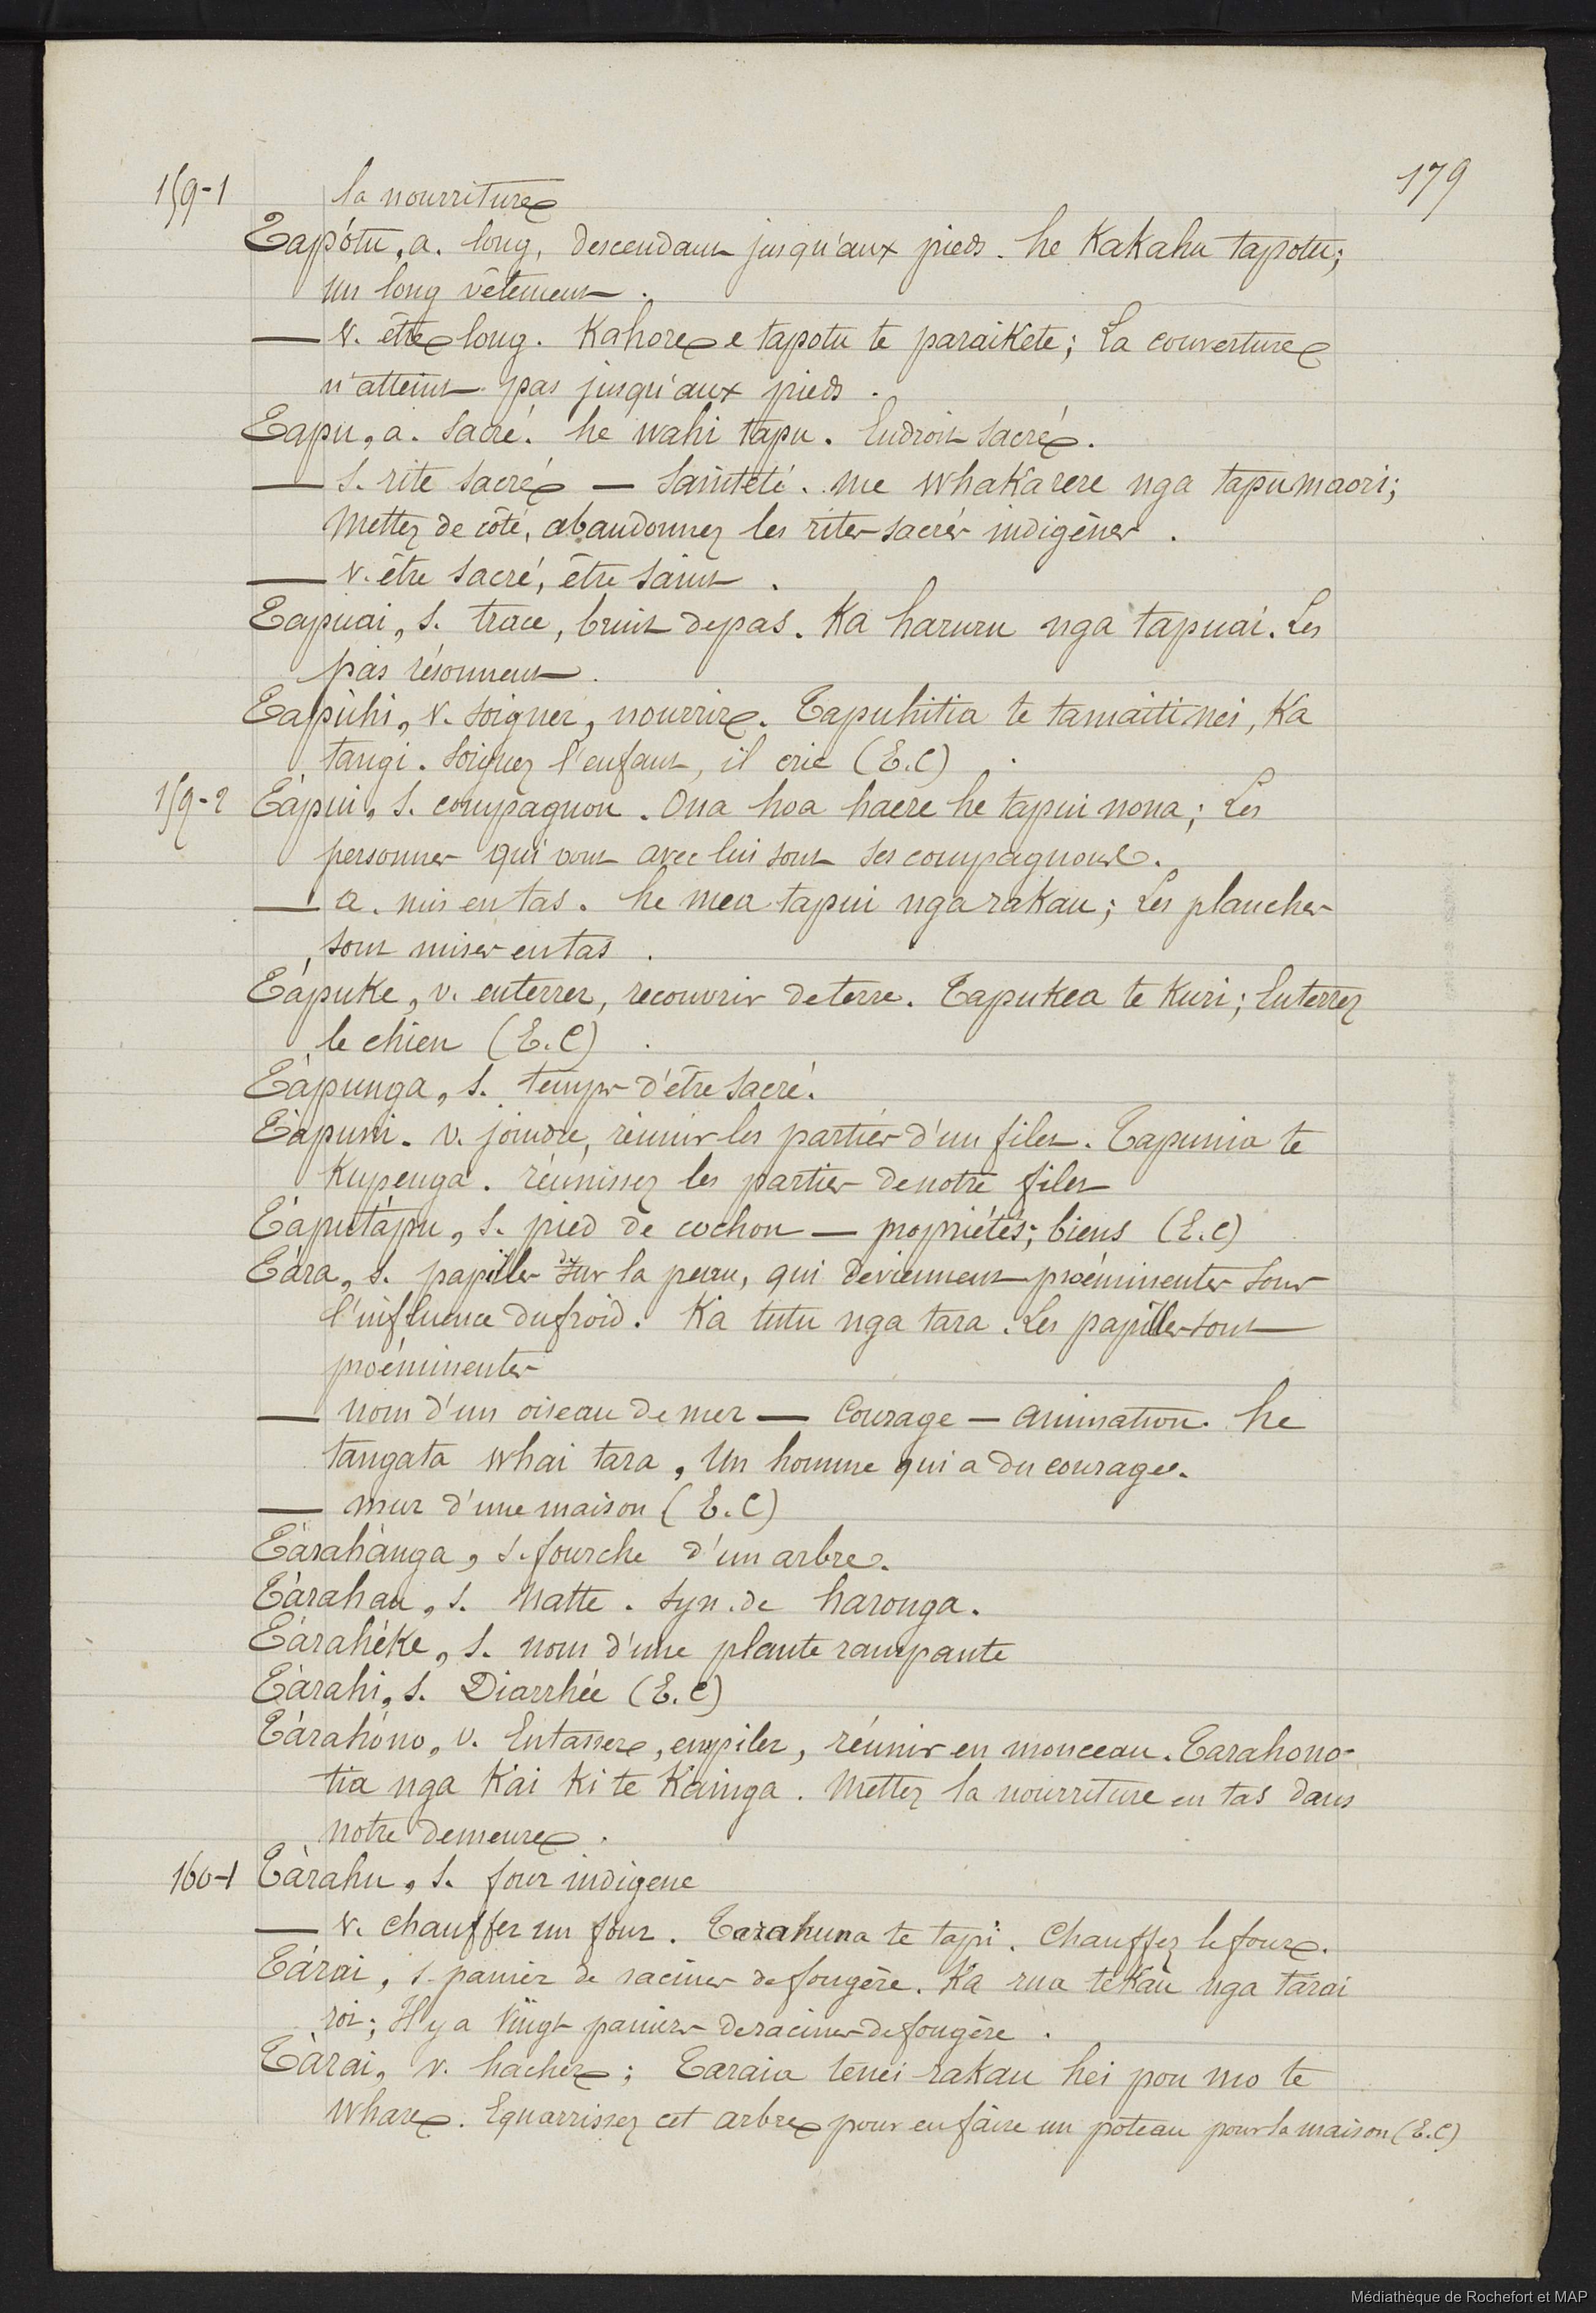 179
159-1 la nourriture
Tapótu, a. long, descendant jusqu'aux pieds. he Kakahu tapotu;
un long vêtement.
— v. être long. Kahore e tapotu te paraikete; La couverture
n'atteint pas jusqu'aux pieds.
Tapu, a. sacré. he wahi tapu. Endroit sacré.
— s. rite sacré — Sainteté. me whakarere nga tapu maori;
Mettez de côté, abandonnez les rites sacrés indigènes.
— v. être sacré, être saint.
Tapuai, s. trace, bruit de pas. Ka haruru nga tapuai. Les
pas résonnent.
Tapùhi, v. soigner, nourrir. Tapuhitia te tamaiti nei, Ka
tangi. Soignez l'enfant, il crie (E.C)
159-2 Tápui, s. compagnon. Ona hoa haere he tapui nona; Les
personnes qui vont avec lui sont ses compagnons.
— a. mis en tas. he mea tapui nga rakau; Les planches
sont mises en tas.
Tápuke, v. enterrer, recouvrir de terre. Tapukea te Kuri; Enterrez
le chien (E.C)
Tápunga, s. temps d'être sacré.
Tàpuni. v. joindre, réunir les parties d'un filet. Tapunia te
Kupenga. réunissez les parties de notre filet
Tàputápu, s. pied de cochon — propriétés; biens (E.C)
Tára, s. papilles de sur la peau, qui deviennent proéminentes sous
l'influence du froid. Ka tutu nga tara. Les papilles sont
proéminentes
— nom d'un oiseau de mer — Courage — animation. he
tangata whai tara, Un homme qui a du courage.
— mur d'une maison (E.C)
Tàrahànga, s. fourche d'un arbre.
Tàrahau, s. Natte. Syn. de haronga.
Tàrahéke, s. nom d'une plante rampante
Tàrahi, s. Diarrhée (E.C)
Tàrahóno, v. Entasser, empiler, réunir en monceau. Tarahono-
tia nga Kai ki te Kainga. Mettez la nourriture en tas dans
notre demeure.
160-1 Tàrahu, s. four indigene
— v. chauffer un four. Tarahuna te tapi. Chauffez le four.
Tárai, s. panier de racines de fougère. Ka rua tekau nga tarai
roi; Il y a vingt paniers de racines de fougère.
Tàrai, v. hacher; Taraia tenei rakau hei pou mo te
whare. Equarrissez cet arbre pour en faire un poteau pour la maison (E.C)
Médiathèque de Rochefort et MAP